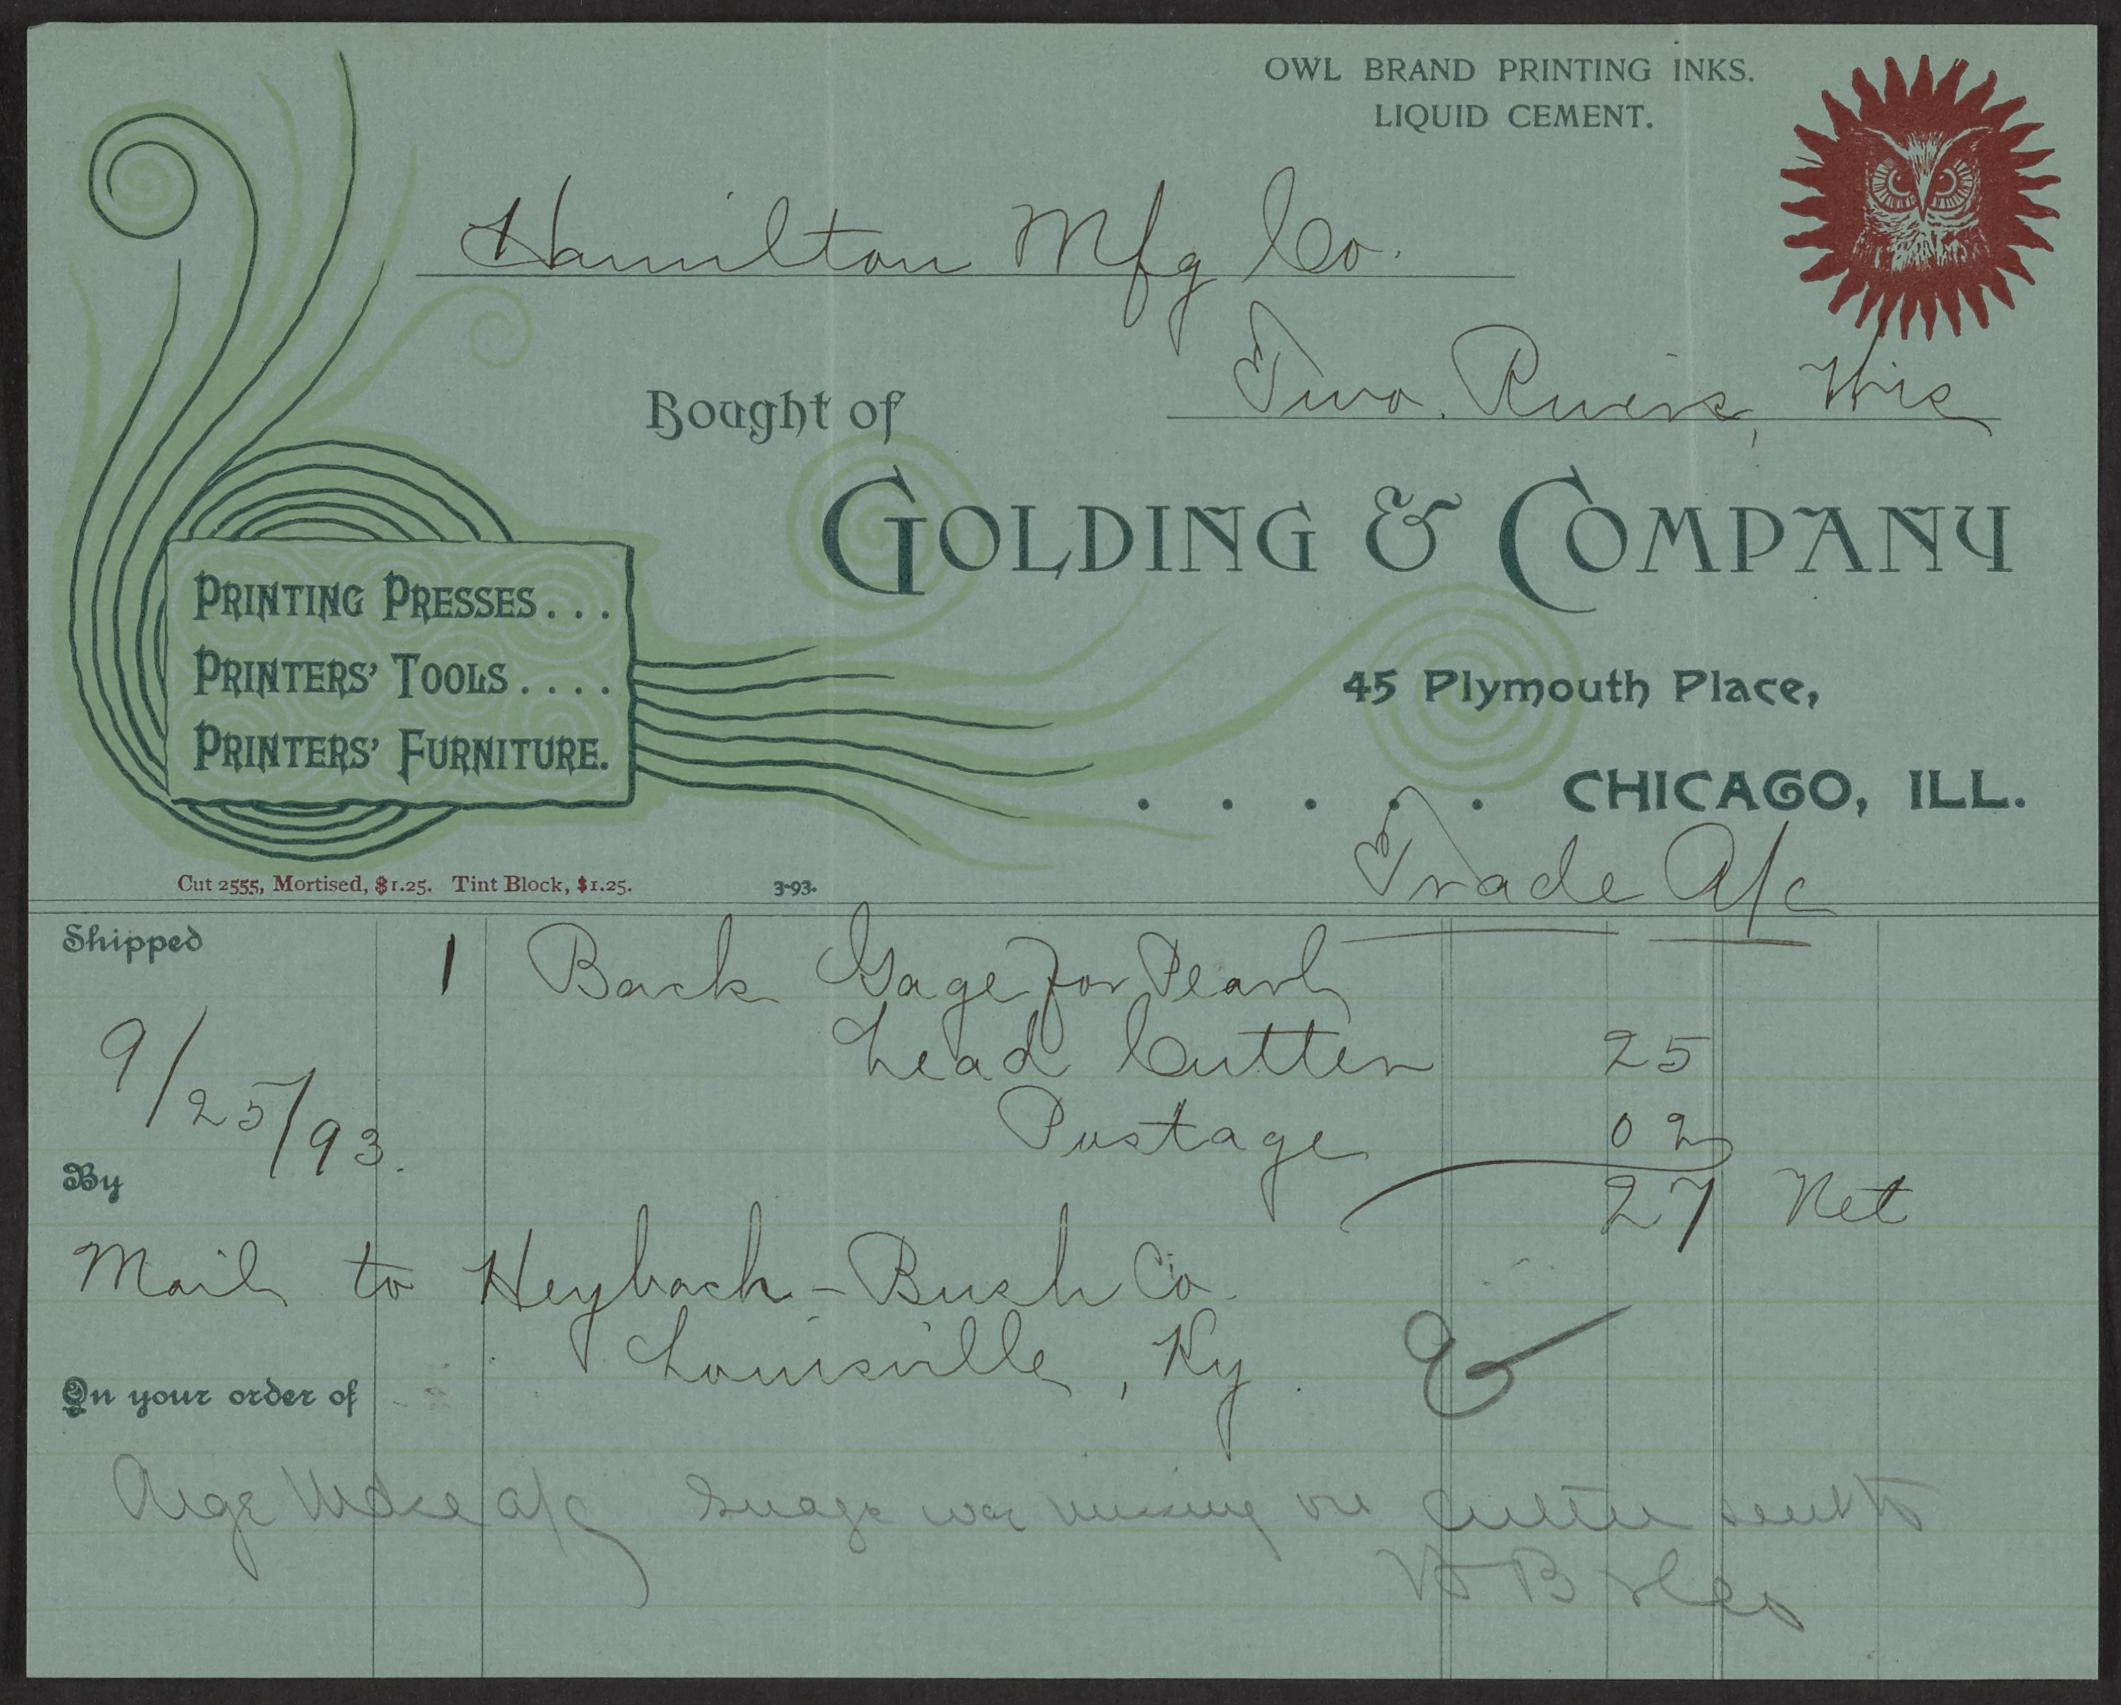 OWL BRAND PRINTING INKS.
LIQUID CEMENT.
Hamilton Mfg Co.
Two Rivers, Wis
Bought of
GOLDING & COMPANY
PRINTING PRESSES...
PRINTERS' TOOLS....
PRINTERS' FURNITURE.
45 Plymouth Place,
..... CHICAGO, ILL.
Trade A/c
Cut 2555, Mortised, $1.25. Tint Block, $1.25. 3-93.
Shipped 1 Back Gage for Pearl
Lead Cutter 25
9/25/93.
Postage 02
By
27 Net
Mail to Heybach-Bush Co.
Louisville, Ky.
On your order of
a/c Guage was missing on Cutter sent to
H B & Co